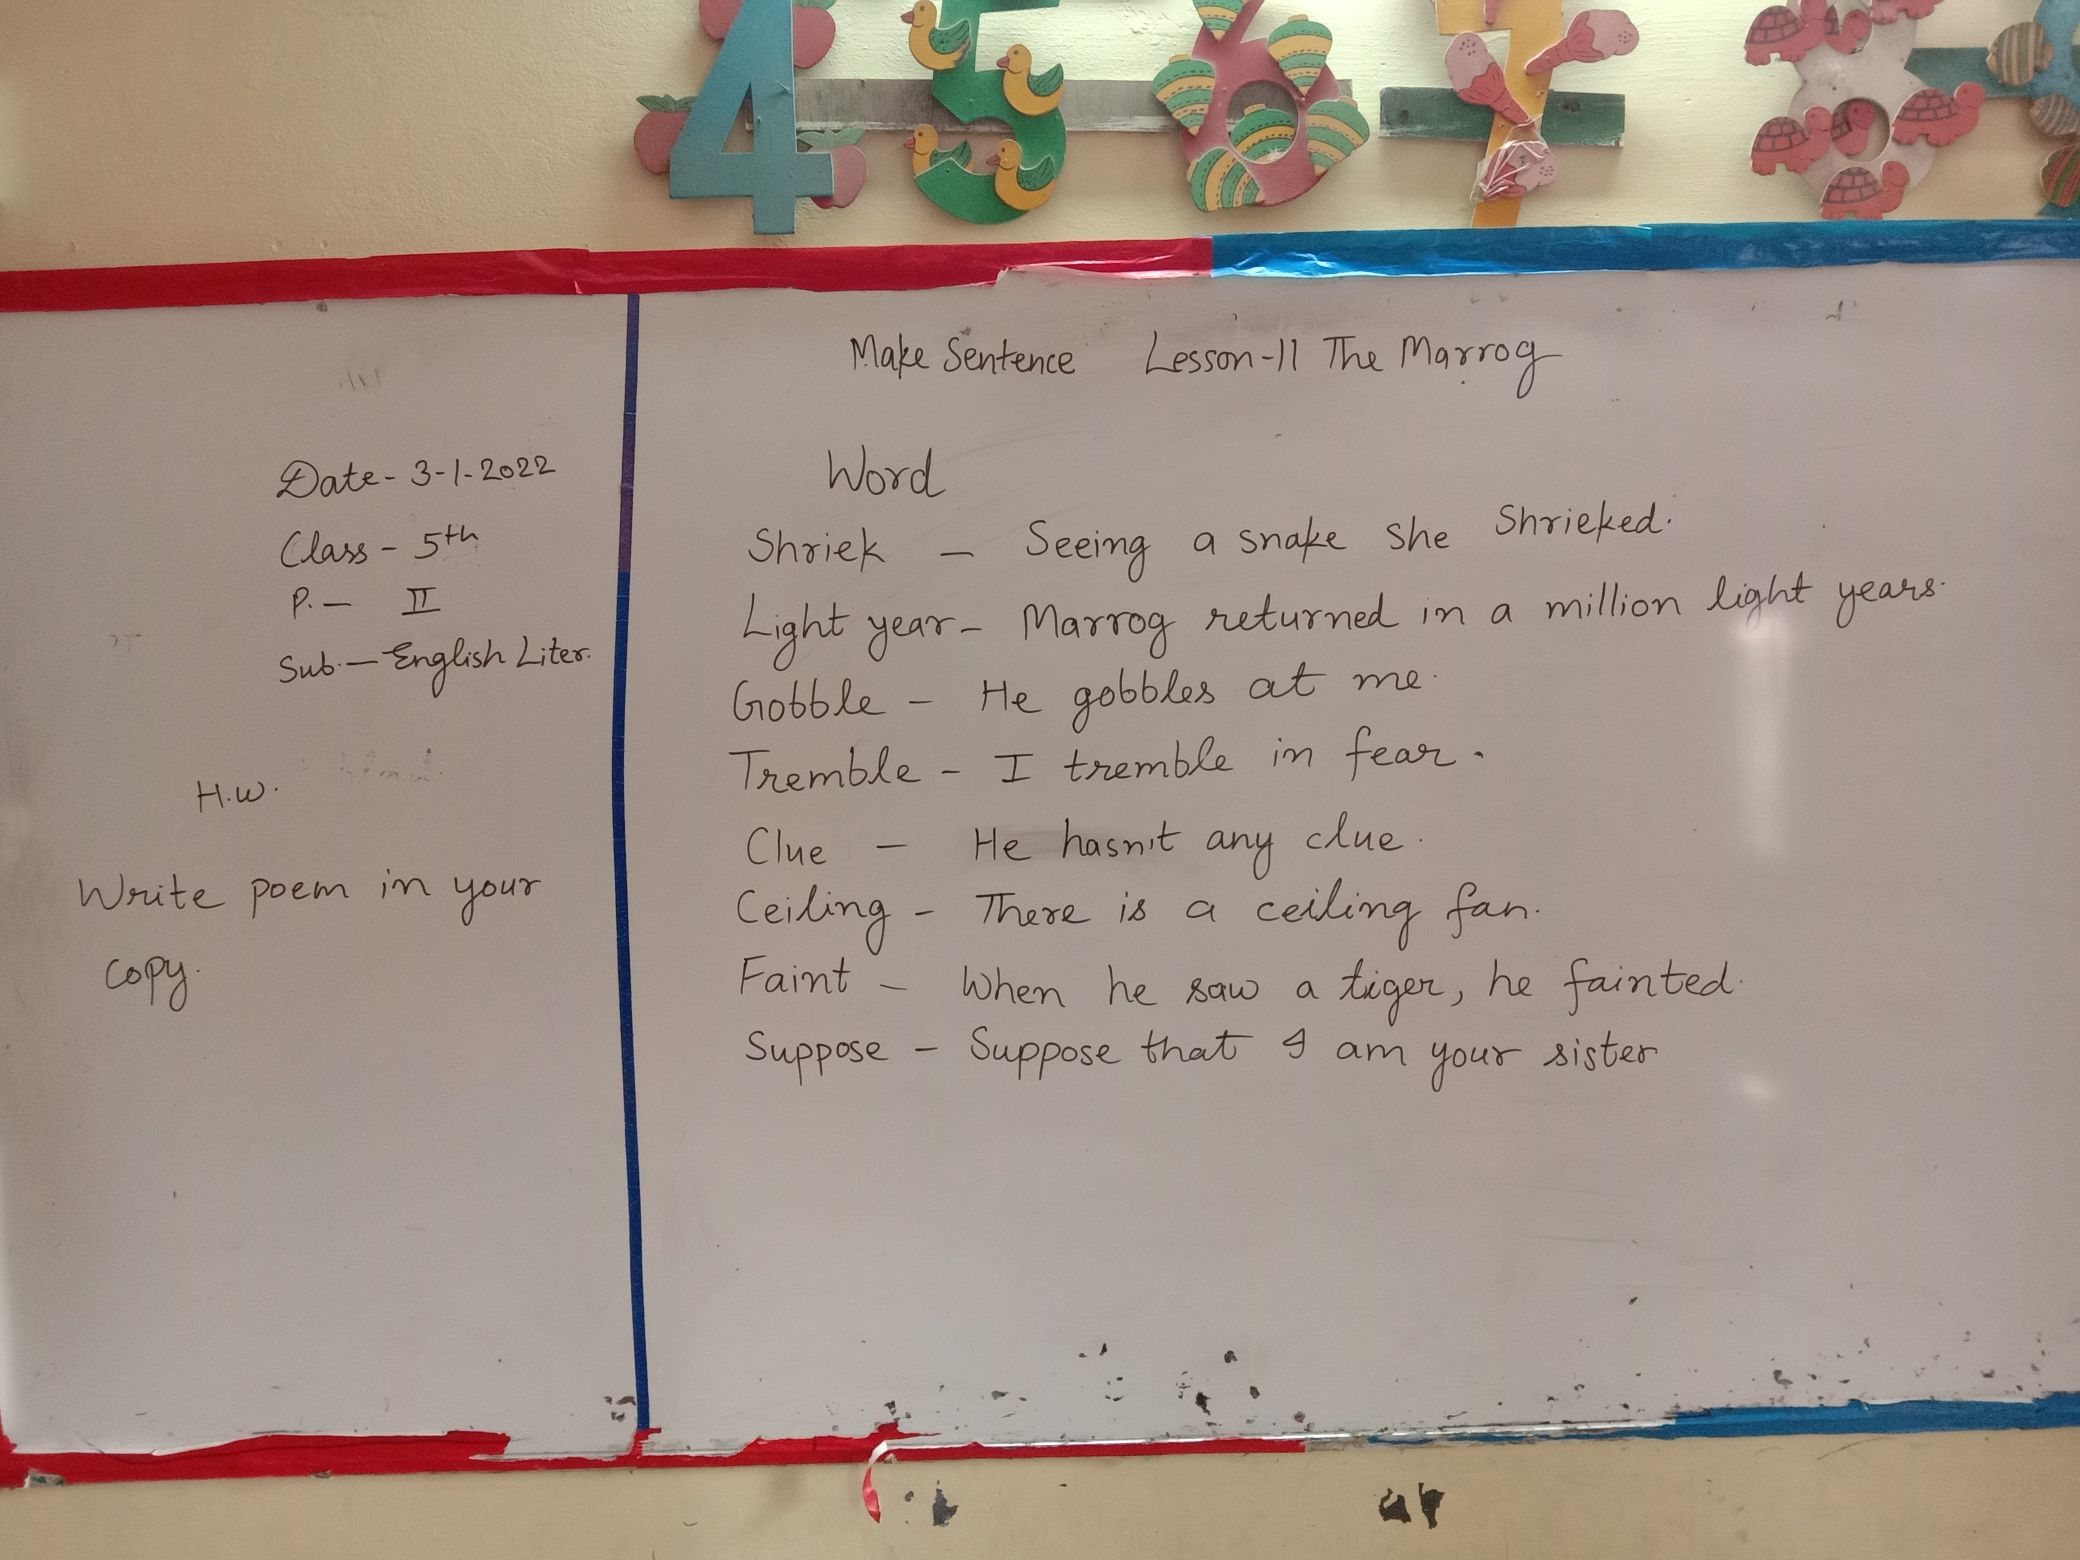 Make Sentence Lesson-11 The Marrog
Date- 3-1-2022
Class - 5th
P. - II
Sub. - English Liter.
H.W.
Write poem in your
copy.
Word
Shriek - Seeing a snake she Shrieked.
Light year - Marrog returned in a million light years.
Gobble - He gobbles at me.
Tremble - I tremble in fear.
Clue - He hasn't any clue.
Ceiling - There is a ceiling fan.
Faint - When he saw a tiger, he fainted.
Suppose - Suppose that I am your sister
4 5 6 7 8